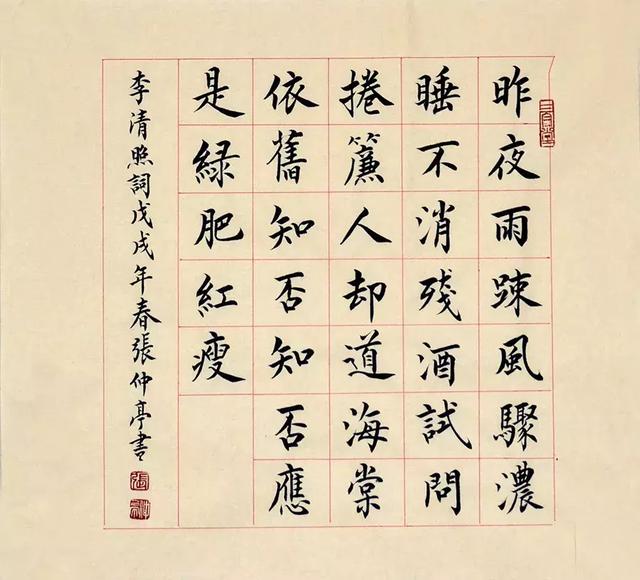 昨夜雨踈風驟濃
睡不消殘酒試問
捲簾人却道海棠
依舊知否知否應
是緑肥紅瘦
李清照詞戊戌年春張仲亭書
張